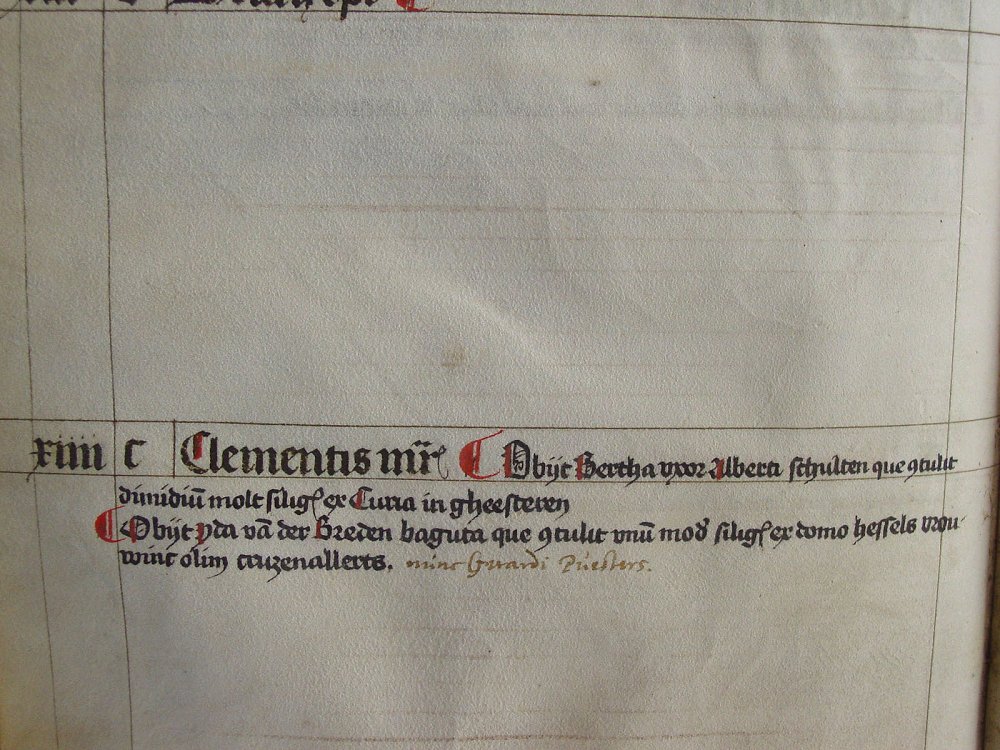 xiiii c Clementis mr̃is ¶ Obijt Bertha vxor Alberti schulten que ꝯtulit
dimidiũ molt silig̃ ex Curia in gheesteren
¶ Obijt yda vã der Breden baguta que ꝯtulit vnũ mod̃ silig̃ ex domo hessels vrou
winc olim cruzenallerts. nunc Gerardi Puesters.